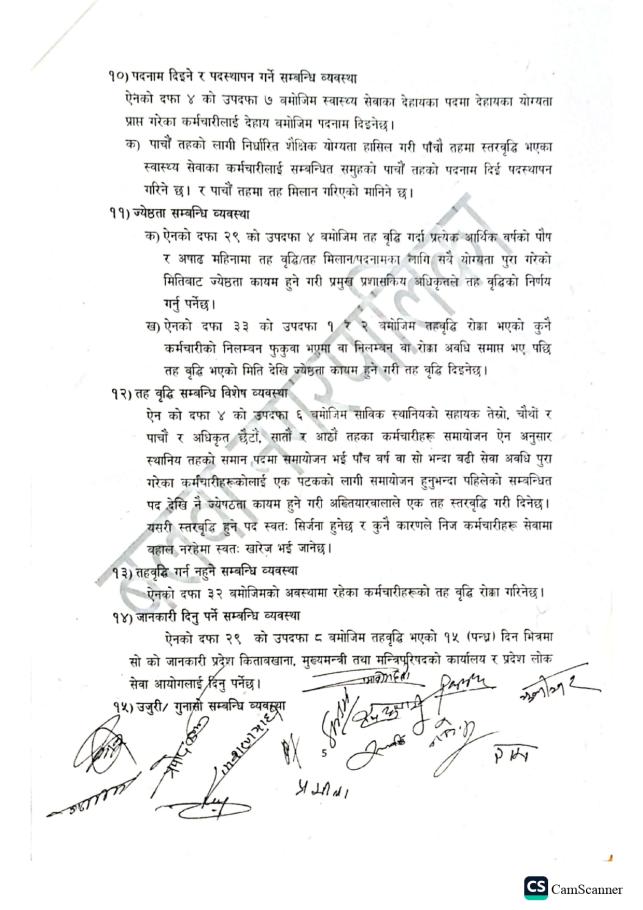 १०) पदनाम दिइने र पदस्थापन गर्ने सम्बन्धि व्यवस्था
ऐनको दफा ४ को उपदफा ७ बमोजिम स्वास्थ्य सेवाका देहायका पदमा देहायका योग्यता
प्राप्त गरेका कर्मचारीलाई देहाय बमोजिम पदनाम दिइनेछ।
क) पाचौं तहको लागी निर्धारित शैक्षिक योग्यता हासिल गरी पाँचौ तहमा स्तरवृद्धि भएका
स्वास्थ्य सेवाका कर्मचारीलाई सम्बन्धित समुहको पाचौं तहको पदनाम दिई पदस्थापन
गरिने छ। र पाचौं तहमा तह मिलान गरिएको मानिने छ।
११) ज्येष्ठता सम्बन्धि व्यवस्था
क) ऐनको दफा २९ को उपदफा ४ बमोजिम तह वृद्धि गर्दा प्रत्येक आर्थिक वर्षको पौष
र अषाढ महिनामा तह वृद्धि/तह मिलान/पदनामका लागि सबै योग्यता पुरा गरेको
मितिबाट ज्येष्ठता कायम हुने गरी प्रमुख प्रशासकिय अधिकृतले तह वृद्धिको निर्णय
गर्नु पर्नेछ।
ख) ऐनको दफा ३३ को उपदफा १ र २ बमोजिम तहवृद्धि रोक्का भएको कुनै
कर्मचारीको निलम्बन फुकुवा भएमा वा निलम्बन वा रोक्का अवधि समाप्त भए पछि
तह वृद्धि भएको मिति देखि ज्येष्ठता कायम हुने गरी तह वृद्धि दिइनेछ।
१२) तह वृद्धि सम्बन्धि विशेष व्यवस्था
ऐन को दफा ४ को उपदफा ६ बमोजिम साविक स्थानियको सहायक तेस्रो, चौथों र
पाचौ र अधिकृत छैटौं, सातौ र आठौं तहका कर्मचारीहरू समायोजन ऐन अनुसार
स्थानिय तहको समान पदमा समायोजन भई पाँच वर्ष वा सो भन्दा बढी सेवा अवधि पुरा
गरेका कर्मचारीहरूकोलाई एक पटकको लागी समायोजन हुनुभन्दा पहिलेको सम्बन्धित
पद देखि नै ज्येष्ठता कायम हुने गरी अख्तियारवालाले एक तह स्तरवृद्धि गरी दिनेछ।
यसरी स्तरवृद्धि हुने पद स्वतः सिर्जना हुनेछ र कुनै कारणले निज कर्मचारीहरू सेवामा
बहाल नरहेमा स्वतः खारेज भई जानेछ।
१३) तहवृद्धि गर्न नहुने सम्बन्धि व्यवस्था
ऐनको दफा ३२ बमोजिमको अवस्थामा रहेका कर्मचारीहरूको तह वृद्धि रोक्का गरिनेछ।
१४) जानकारी दिनु पर्ने सम्बन्धि व्यवस्था
ऐनको दफा २९ को उपदफा ८ बमोजिम तहवृद्धि भएको १५ (पन्ध्र) दिन भित्रमा
सो को जानकारी प्रदेश कितावखाना, मुख्यमन्त्री तथा मन्त्रिपरिषदको कार्यालय र प्रदेश लोक
सेवा आयोगलाई दिनु पर्नेछ।
१५) उजुरी/ गुनासो सम्बन्धि व्यवस्था
CS CamScanner